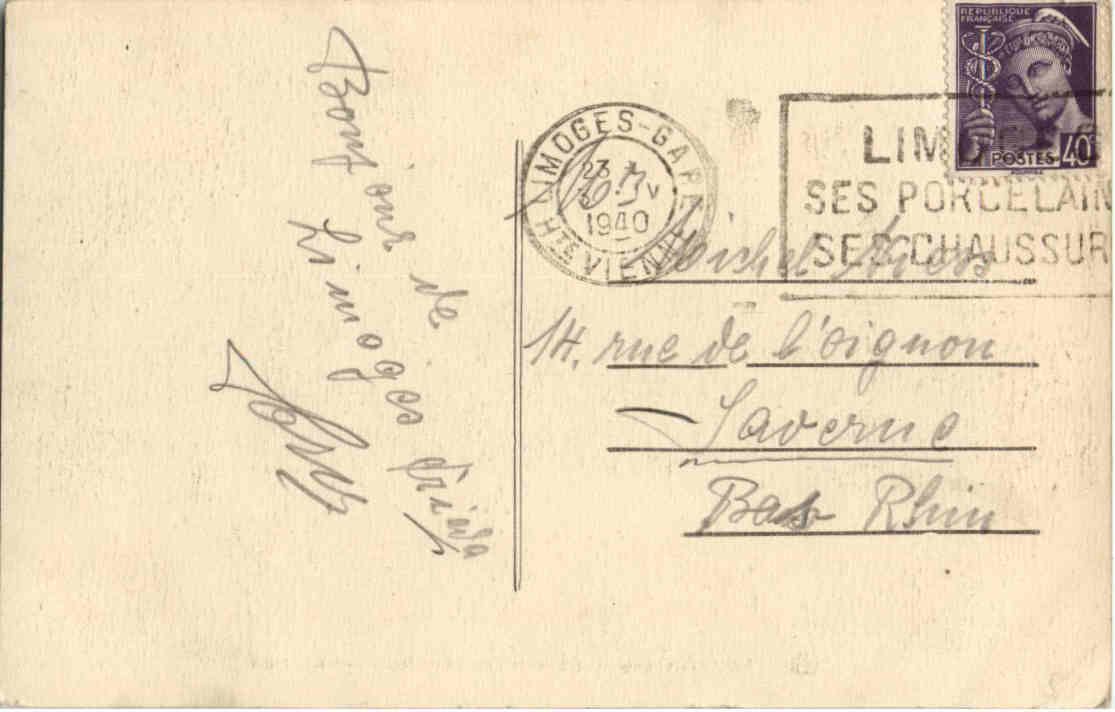 Bonjour de
Limoges Frieda
LIMOGES-GARE
23
1940
HTE VIENNE
LIM
SES PORCELAIN
SES CHAUSSUR
REPUBLIQUE
FRANÇAISE
POSTES 40
Michel
14, rue de l'oignon
Saverne
Bas Rhin